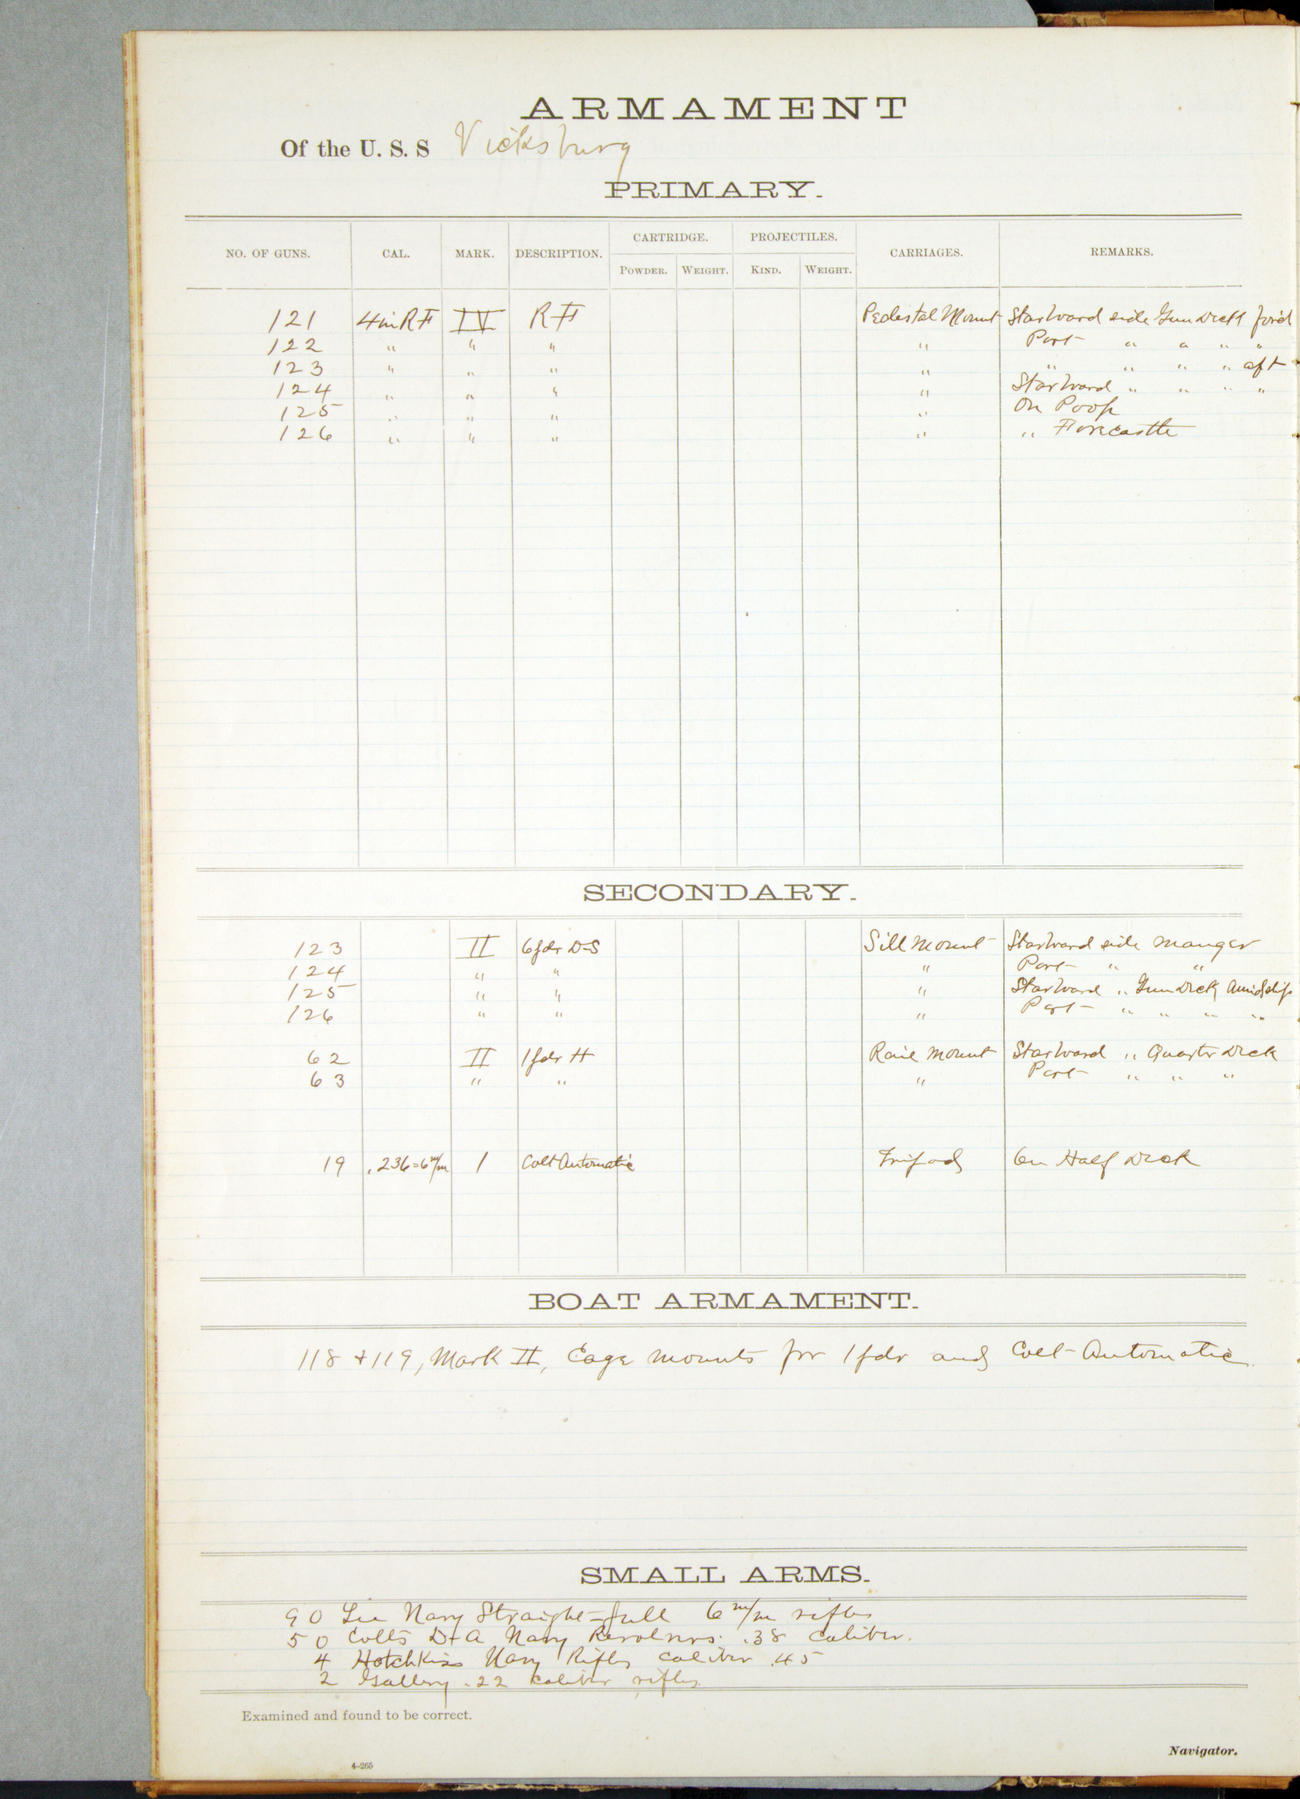 ARMAMENT
Of the U. S. S Vicksburg
PRIMARY.
NO. OF GUNS. CAL. MARK. DESCRIPTION. CARTRIDGE. PROJECTILES. CARRIAGES. REMARKS.
POWDER. WEIGHT. KIND. WEIGHT.
121 4in RF IV RF Pedestal Mount Starboard side Gun Deck for'd
122 " " " " Port " " " "
123 " " " " " " " " aft
124 " " " " Starboard " " " "
125 " " " " On Poop
126 " " " " " Forecastle
SECONDARY.
123 II 6pdr D-S Sill Mount Starboard side manger
124 " " " Port " "
125 " " " Starboard " Gun Deck Amidships
126 " " " Port " " " "
62 II 1pdr H Rail Mount Starboard " Quarter Deck
63 " " " Port " " "
19 .236=6m/m 1 Colt Automatic Tripod On Half Deck
BOAT ARMAMENT.
118 & 119, Mark II, Cage mounts for 1pdr and Colt Automatic.
SMALL ARMS.
90 Lee Navy Straight-pull 6 m/m rifles
50 Colts D+A Navy Revolvers .38 caliber.
4 Hotchkiss Navy Rifles caliber .45
2 Gallery .22 caliber rifles.
Examined and found to be correct.
Navigator.
4-265